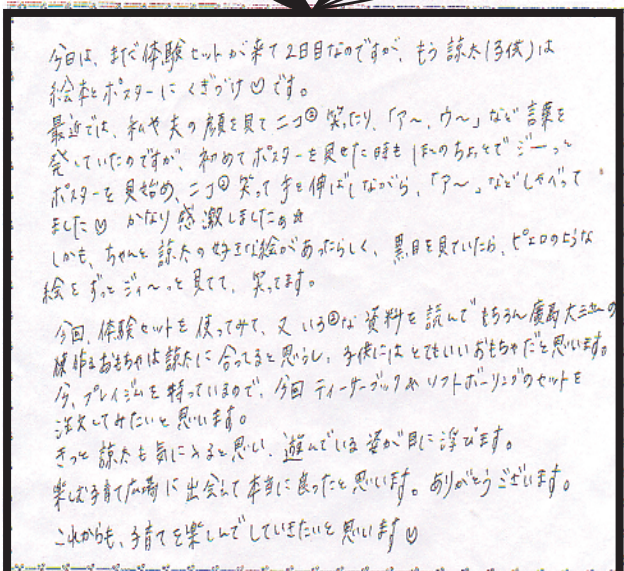 今日は、まだ体験セットが来て2日目なのですが、もう諒太(子供)は
絵本とポスターにくぎづけ♡です。
最近では、私や夫の顔を見てニコ②笑ったり、「ア〜、ウ〜」など言葉を
発していたのですが、初めてポスターを見せた時もほんのちょっとでジーっと
ポスターを見始め、ニコ②笑って手を伸ばしながら、「ア〜」などしゃべって
ました♡ かなり感激しましたぁ☆
しかも、ちゃんと諒太の好きな絵があったらしく、黒目を見ていたら、ピエロのような
絵をずっとジィ〜っと見てて、笑ってます。
今回、体験セットを使ってみて、又いろ②な資料を読んでもちろん廣島大三さんの
作るおもちゃは諒太に合ってると思うし、子供にはとてもいいおもちゃだと思います。
今、プレイジムを持っているので、今回ティーサーブック&ソフトボーリングのセットを
注文してみたいと思います。
きっと諒太も気に入ると思い、遊んでいる姿が目に浮びます。
楽しむ子育て広場に出会えて本当に良ったと思います。ありがとうございます。
これからも、子育てを楽しんでしていきたいと思います♡